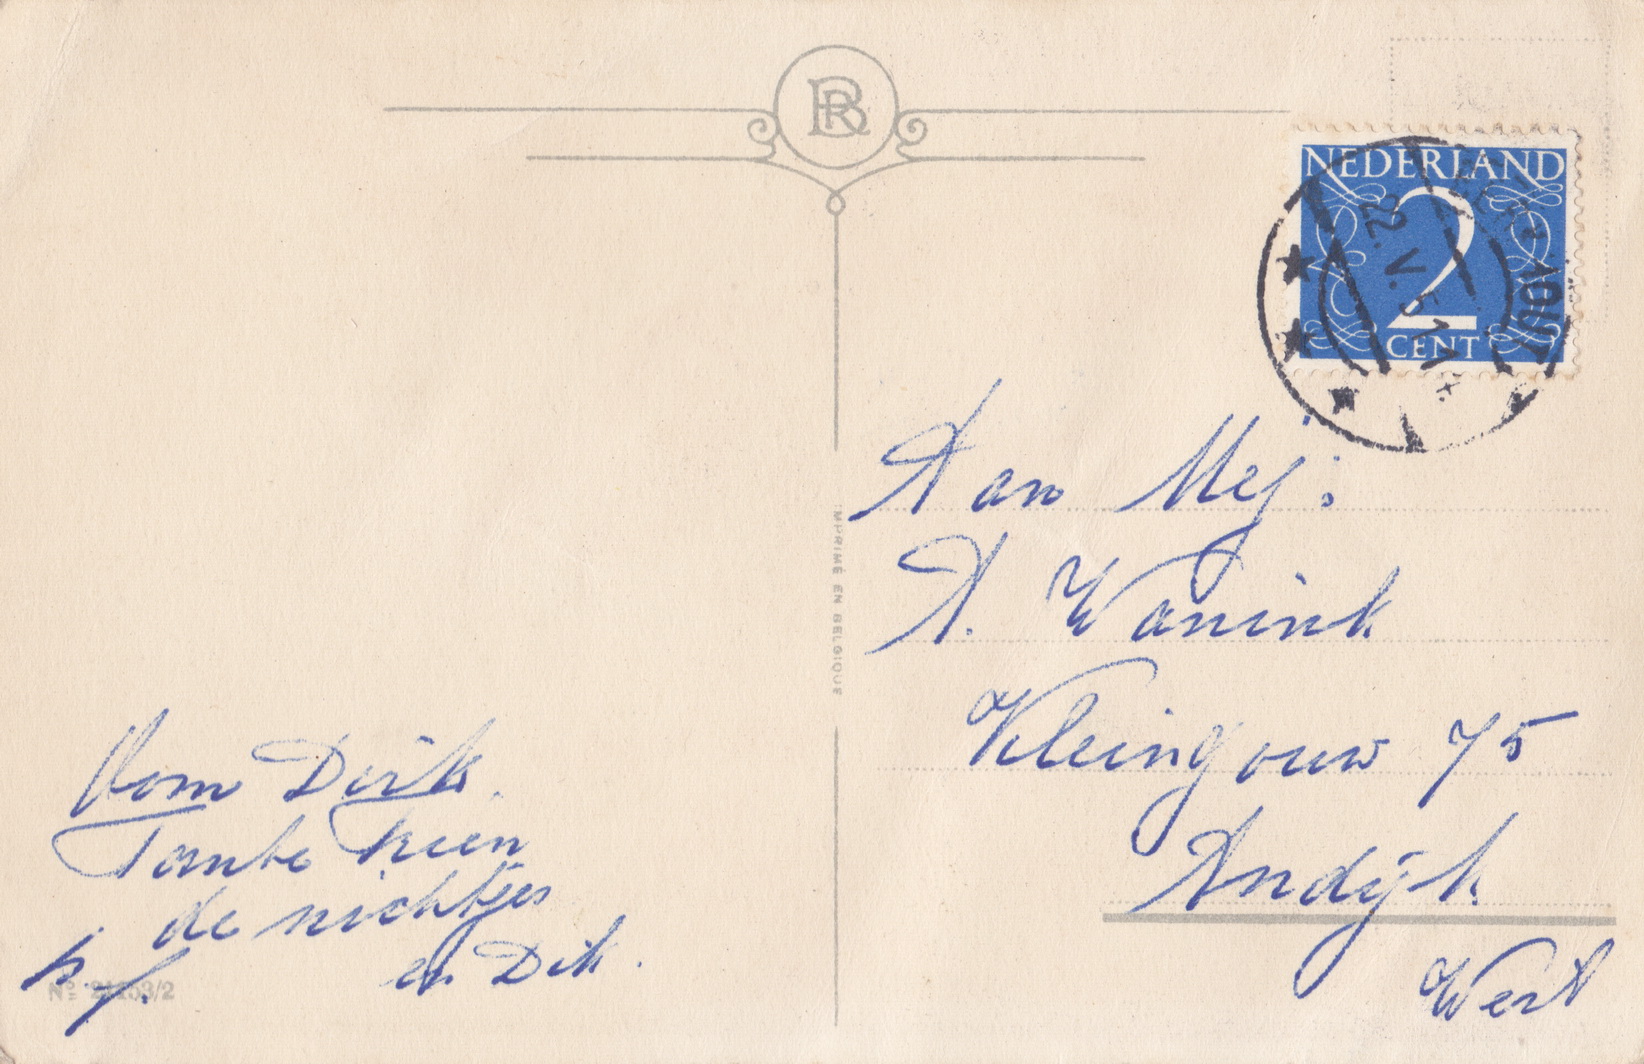 BR
NEDERLAND
2
CENT
2. V. 51
Aan Mej:
A. Wanink
Kleingouw 75
Andijk
West
IMPRIMÉ EN BELGIQUE
Oom Dirk.
Tante Trien
de nichtjes
en Dik.
p.f.
No 24153/2